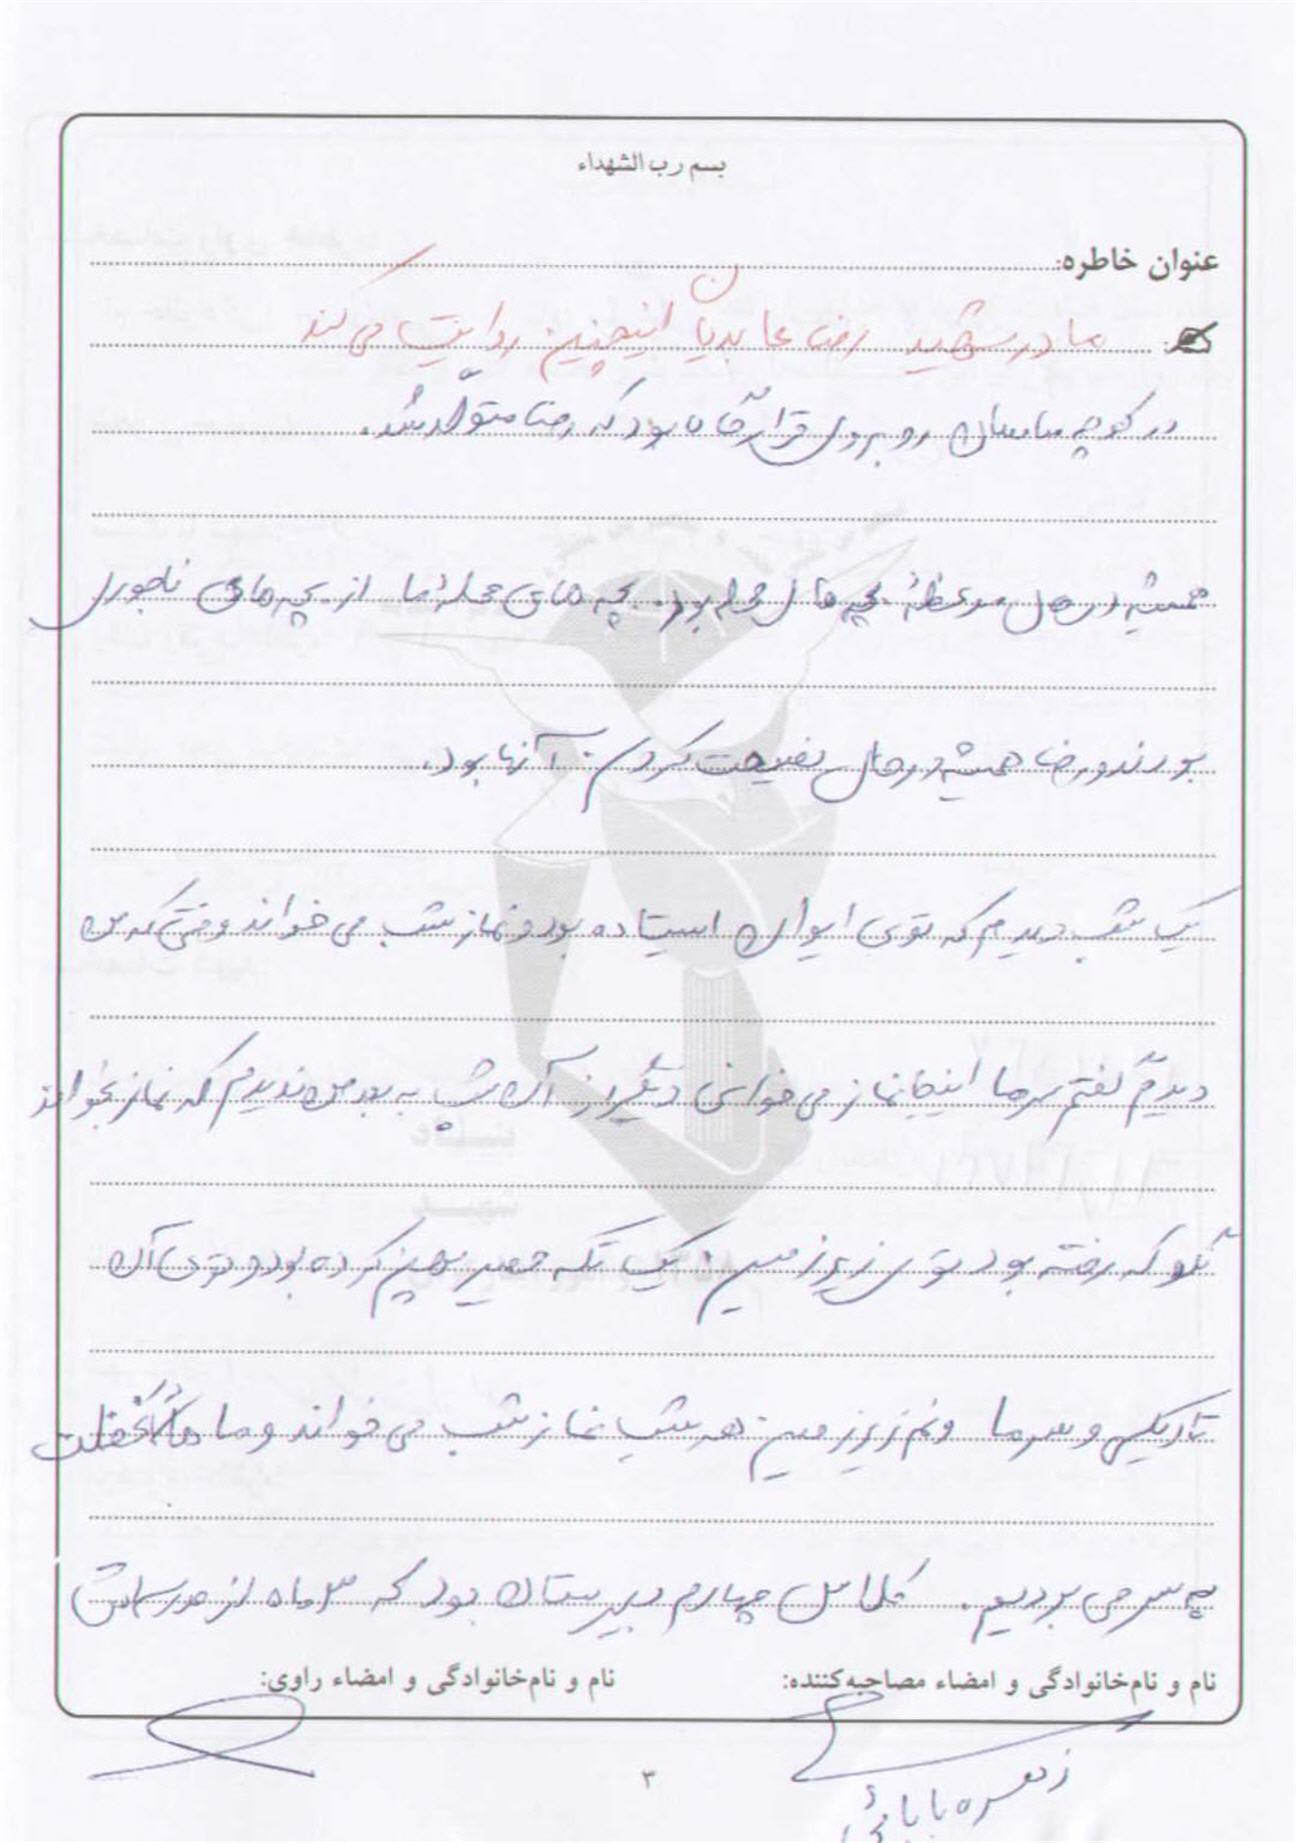 بسم رب الشهداء
عنوان خاطره:
مادر شهید رضا عابدیان اینچنین روایت می کند
در کوچه ساسان روبروی قرارگاه بود که رضا متولد شد.
همیشه در حال موعظهٔ بچه های محله بود. بچه های محلهٔ ما از بچه های ناجوری
بودند و رضا همیشه در حال نصیحت کردن آنها بود.
یک شب دیدم که توی ایوان ایستاده بود و نماز شب می خواند وقتی که من
دیدم گفتم سرما اینجا نماز می خوانی دیگر از آن شب به بعد من ندیدم که نماز بخواند
نگو که رفته بود توی زیرزمین یک تکه حصیر پهن کرده بود و توی آن
تاریکی و سرما و نم زیرزمین هر شب نماز شب می خواند و ما در غفلت
به سر می بردیم. کلاس چهارم دبیرستان بود که ۳ ماه از مدرسه اش
نام و نام‌خانوادگی و امضاء مصاحبه‌کننده:
نام و نام‌خانوادگی و امضاء راوی:
بابائی
۳